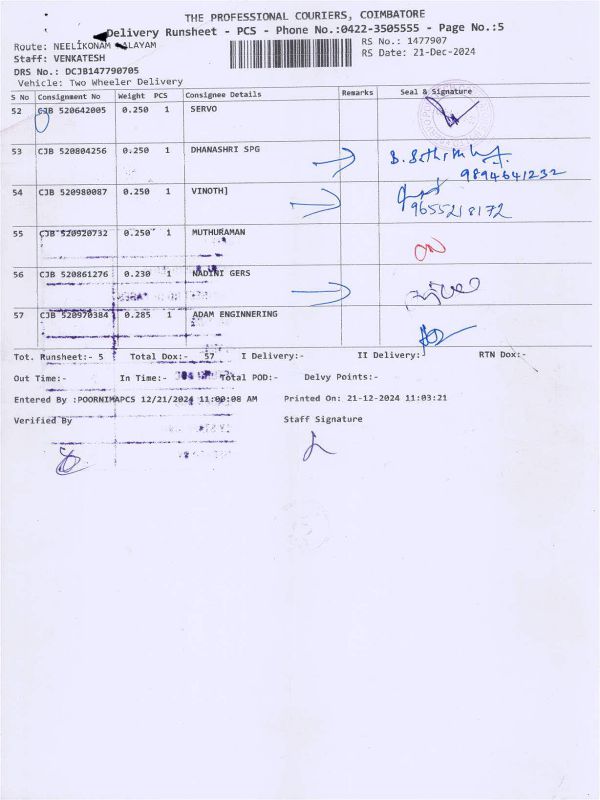 THE PROFESSIONAL COURIERS, COIMBATORE
Delivery Runsheet - PCS - Phone No.:0422-3505555 - Page No.:5
Route: NEELIKONAM ALAYAM
RS No.: 1477907
Staff: VENKATESH
RS Date: 21-Dec-2024
DRS No.: DCJB147790705
Vehicle: Two Wheeler Delivery
S No Consignment No Weight PCS Consignee Details Remarks Seal & Signature
52 CJB 520642005 0.250 1 SERVO
53 CJB 520804256 0.250 1 DHANASHRI SPG
9894641232
54 CJB 520980087 0.250 1 VINOTH]
9655218172
55 CJB 520920732 0.250 1 MUTHURAMAN
56 CJB 520861276 0.230 1 NADINI GERS
57 CJB 520970384 0.285 1 ADAM ENGINNERING
Tot. Runsheet:- 5 Total Dox:- 57 I Delivery:- II Delivery: RTN Dox:-
Out Time:- In Time:- Total POD:- Delvy Points:-
Entered By :POORNIMAPCS 12/21/2024 11:00:08 AM Printed On: 21-12-2024 11:03:21
Verified By Staff Signature